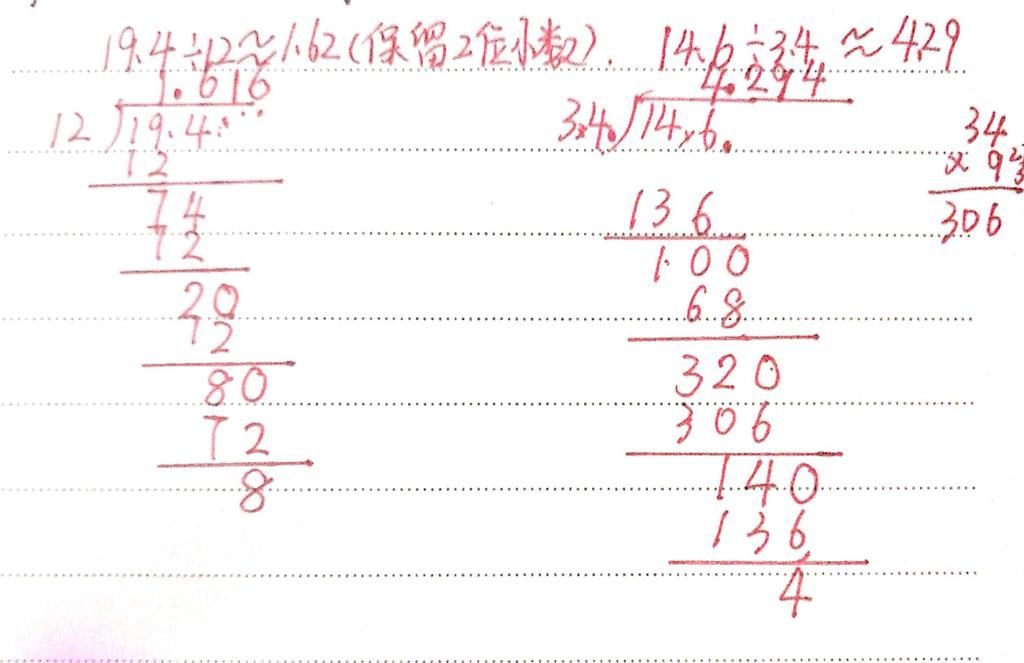 19.4÷12≈1.62(保留2位小数). 14.6÷3.4≈4.29
1.616
12 19.4
12
74
72
20
12
80
72
8
4.294
3.4. 14.6.
136
100
68
320
306
140
136
4
34
×9
306